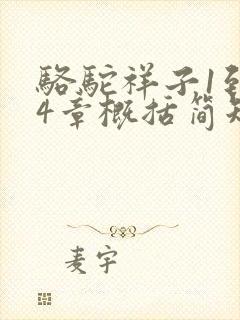 骆驼祥子1到
4章概括简短
麦宇